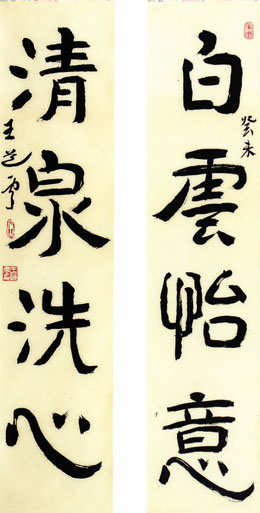 白雲怡意
癸未
清泉洗心